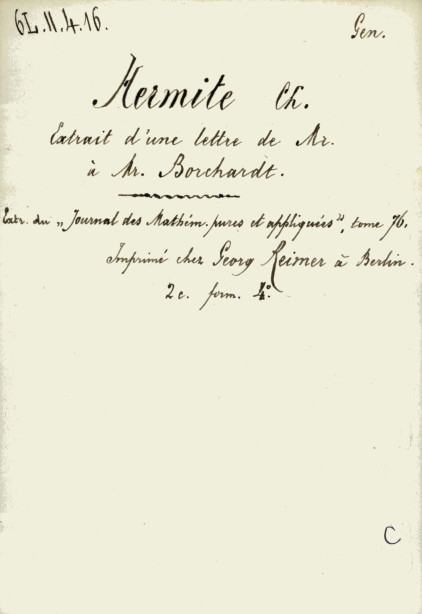 6L.11.4.16.
Gen.
Hermite Ch.
Extrait d'une lettre de Mr.
à Mr. Borchardt.
Extr. du „Journal des Mathém. pures et appliquées", tome 76.
Imprimé chez Georg Reimer à Berlin.
2 c. form. 4°.
C